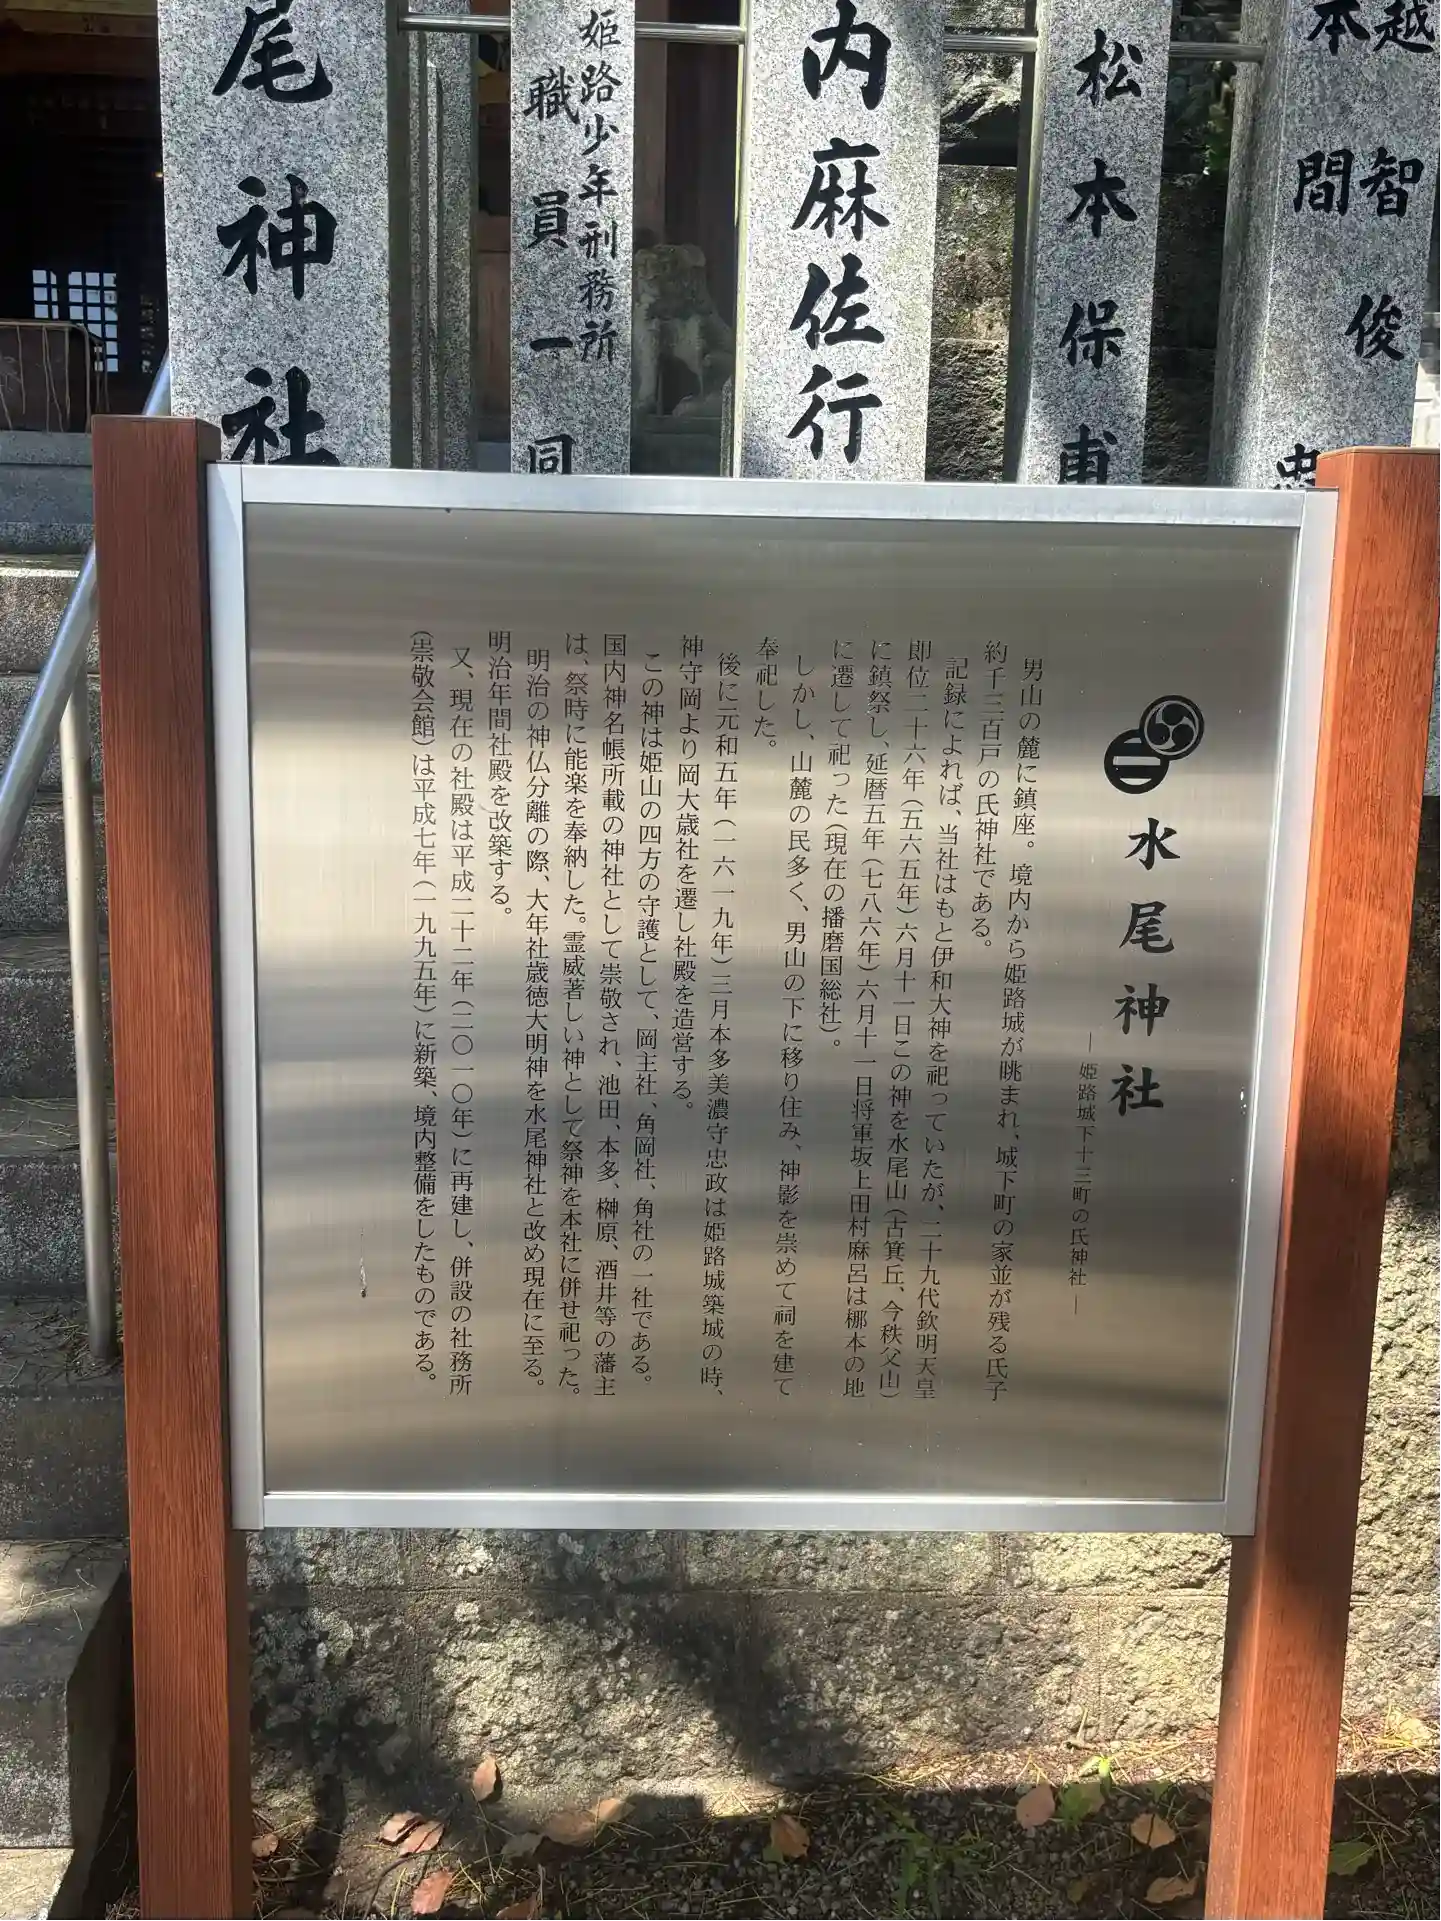 水尾神社
―姫路城下十三町の氏神社―
男山の麓に鎮座。境内から姫路城が眺まれ、城下町の家並が残る氏子
約千三百戸の氏神社である。
記録によれば、当社はもと伊和大神を祀っていたが、二十九代欽明天皇
即位二十六年(五六五年)六月十一日この神を水尾山(古箕丘、今秩父山)
に鎮祭し、延暦五年(七八六年)六月十一日将軍坂上田村麻呂は梛本の地
に遷して祀った(現在の播磨国総社)。
しかし、山麓の民多く、男山の下に移り住み、神影を崇めて祠を建て
奉祀した。
後に元和五年(一六一九年)三月本多美濃守忠政は姫路城築城の時、
神守岡より岡大歳社を遷し社殿を造営する。
この神は姫山の四方の守護として、岡主社、角岡社、角社の一社である。
国内神名帳所載の神社として崇敬され、池田、本多、榊原、酒井等の藩主
は、祭時に能楽を奉納した。霊威著しい神として祭神を本社に併せ祀った。
明治の神仏分離の際、大年社歳徳大明神を水尾神社と改め現在に至る。
明治年間社殿を改築する。
又、現在の社殿は平成二十二年(二〇一〇年)に再建し、併設の社務所
(崇敬会館)は平成七年(一九九五年)に新築、境内整備をしたものである。
越智俊忠
本間
松本保
内麻佐行
姫路少年刑務所
職員一同
尾神社